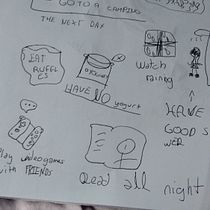 GO TO A CAMPING
THE NEXT DAY
EAT
RUFFL
ES
HAVE NO yogurt
Watch
raining
HAVE
GOOD S
WER
Play videogames
with FRIENDS
Read all night